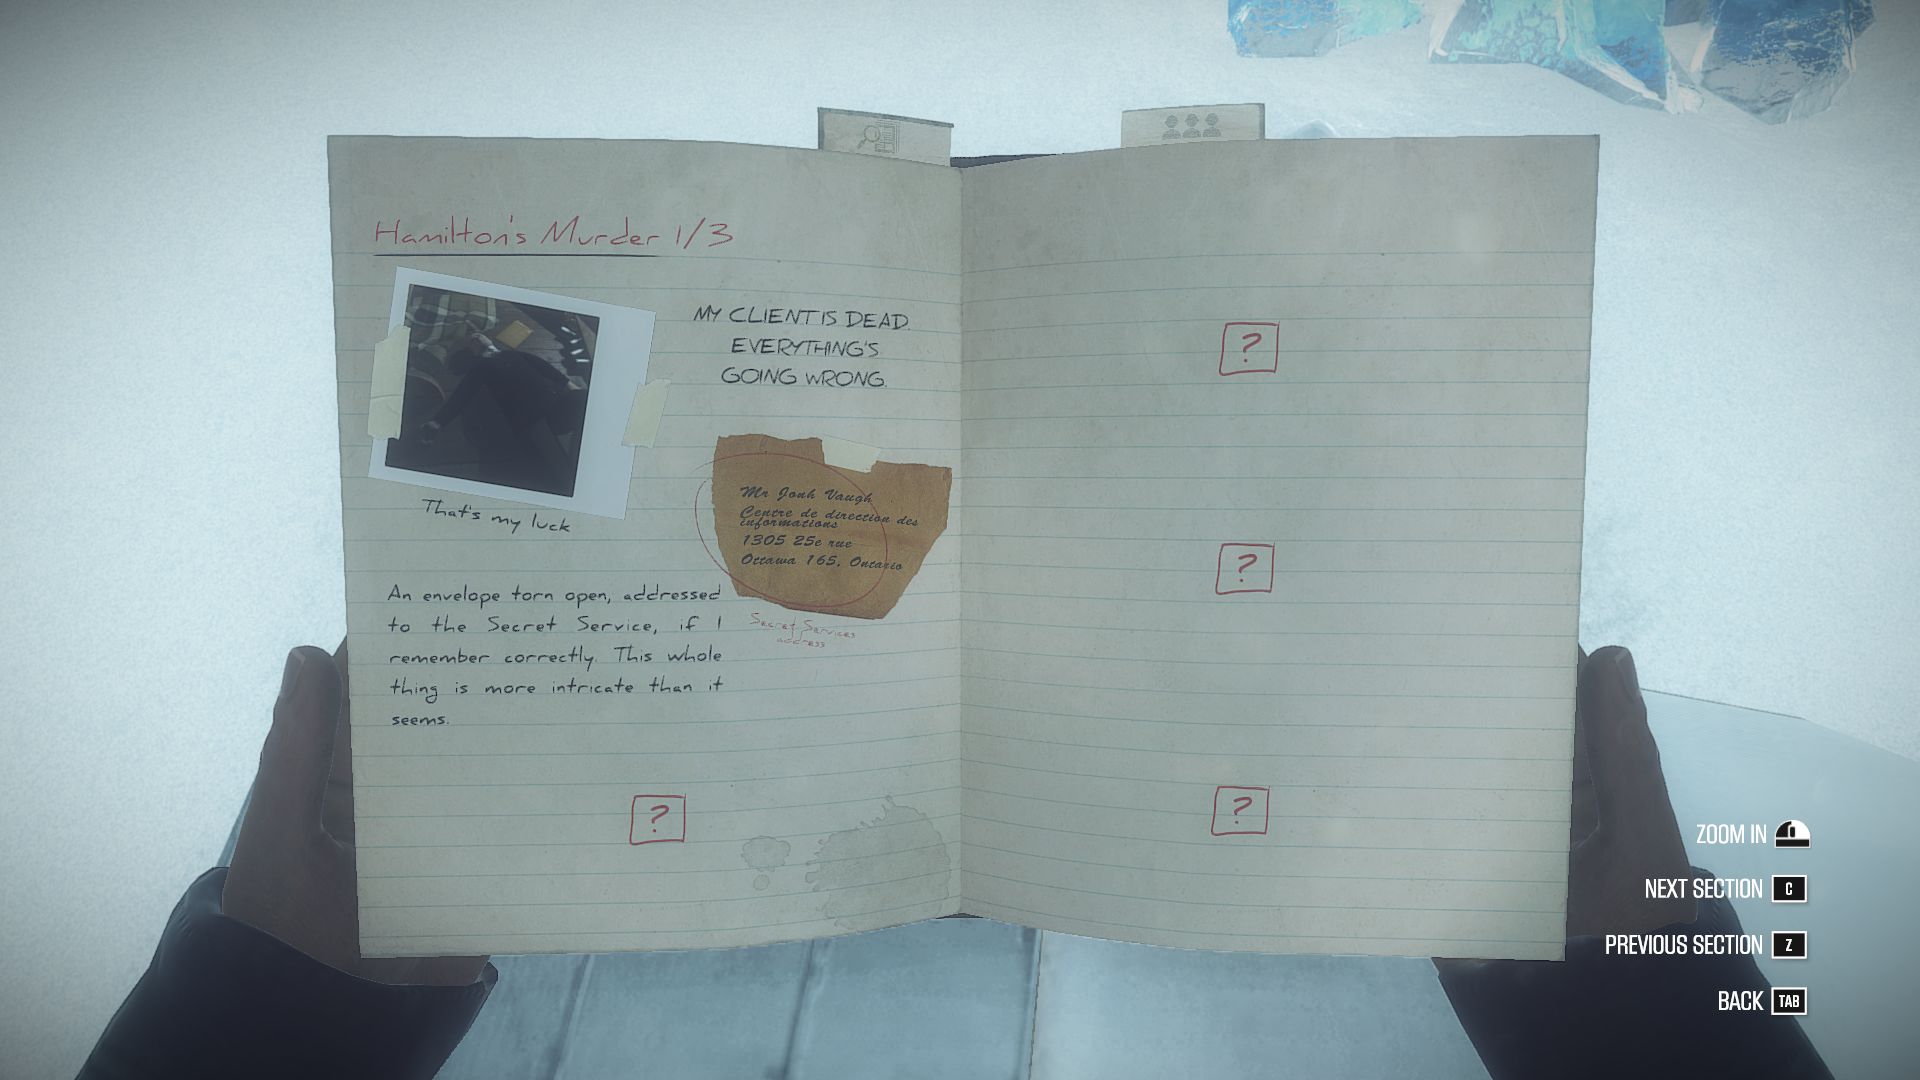 Hamilton's Murder 1/3
MY CLIENT IS DEAD.
EVERYTHING'S
GOING WRONG.
That's my luck
Mr Jonh Vaugh
Centre de direction des
informations
1305 25e rue
Ottawa 165, Ontario
Secret Services
address
An envelope torn open, addressed
to the Secret Service, if I
remember correctly. This whole
thing is more intricate than it
seems.
?
?
?
?
ZOOM IN
NEXT SECTION C
PREVIOUS SECTION Z
BACK TAB